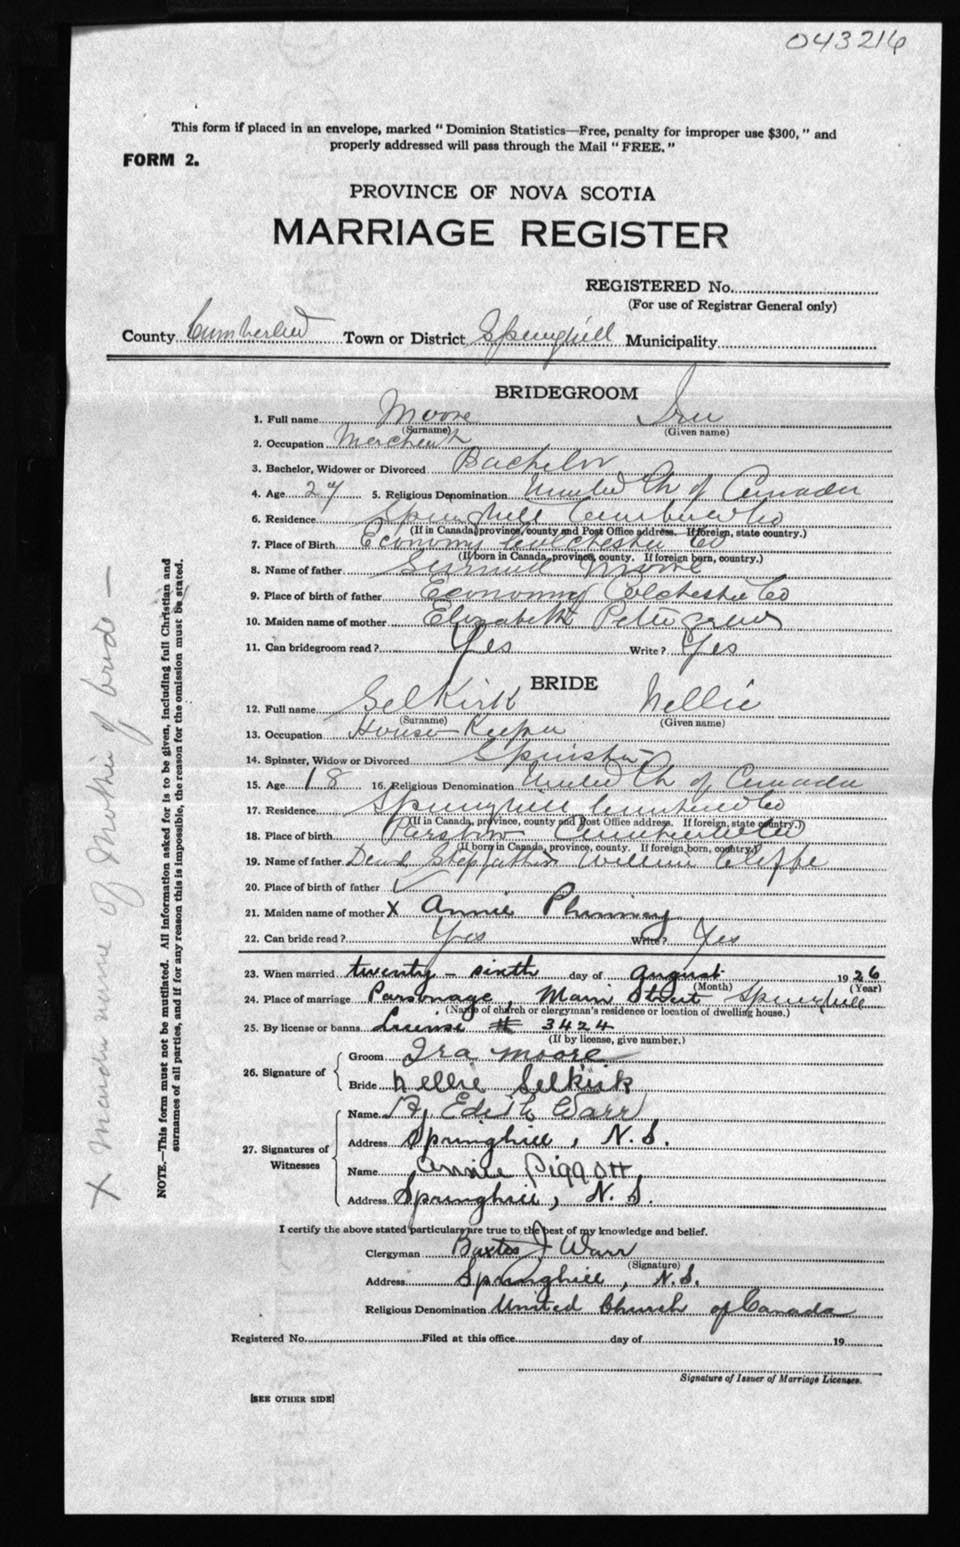 043216
This form if placed in an envelope, marked "Dominion Statistics—Free, penalty for improper use $300," and
properly addressed will pass through the Mail "FREE."
FORM 2.
PROVINCE OF NOVA SCOTIA
MARRIAGE REGISTER
REGISTERED No.
(For use of Registrar General only)
County Cumberland Town or District Springhill Municipality
BRIDEGROOM
1. Full name Moore Ira
(Surname) (Given name)
2. Occupation Merchant
3. Bachelor, Widower or Divorced Bachelor
4. Age 27 5. Religious Denomination United Ch of Canada
6. Residence Springhill Cumber Co
(If in Canada, province, county and Post Office address. If foreign, state country.)
7. Place of Birth Economy Colchester Co
(If born in Canada, province, county. If foreign born, country.)
8. Name of father Moore
9. Place of birth of father Economy Colchester Co
10. Maiden name of mother Elizabeth
11. Can bridegroom read? Yes Write? Yes
BRIDE
12. Full name SelKirk Nellie
(Surname) (Given name)
13. Occupation House Keeper
14. Spinster, Widow or Divorced Spinster
15. Age 18 16. Religious Denomination United Ch of Canada
17. Residence Springhill Cumberland Co
(If in Canada, province, county and Post Office address. If foreign, state country.)
18. Place of birth Parsboro Cumberland Co
(If born in Canada, province, county. If foreign born, country.)
19. Name of father Dead Stepfather William
20. Place of birth of father ✓
21. Maiden name of mother X Annie Phinney
22. Can bride read? Yes Write? Yes
23. When married twenty-sixth day of August 1926
(Month) (Year)
24. Place of marriage Parsonage, Main Street Springhill
(Name of church or clergyman's residence or location of dwelling house.)
25. By license or banns License # 3424
(If by license, give number.)
26. Signature of
Groom Ira Moore
Bride Nellie Selkirk
27. Signatures of Witnesses
Name Edith Warr
Address Springhill, N.S.
Name Annie Piggott
Address Springhill, N.S.
I certify the above stated particulars are true to the best of my knowledge and belief.
Clergyman Baxter J Warr
(Signature)
Address Springhill, N.S.
Religious Denomination United Church of Canada
Registered No. Filed at this office day of 19
Signature of Issuer of Marriage Licenses.
[SEE OTHER SIDE]
NOTE.—This form must not be mutilated. All information asked for is to be given, including full Christian and
surnames of all parties, and if for any reason this is impossible, the reason for the omission must be stated.
X Maiden name of Mother of bride —